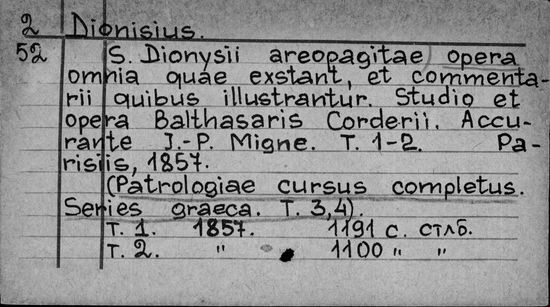 2 Dionisius.
52 S. Dionysii areopagitae opera
omnia quae exstant, et commenta-
rii quibus illustrantur. Studio et
opera Balthasaris Corderii. Accu-
rante J.-P. Migne. T. 1-2. Pa-
risiis, 1857.
(Patrologiae cursus completus.
Series graeca. T. 3,4).
Т. 1. 1857. 1191 с. стлб.
Т. 2. " 1100 " "